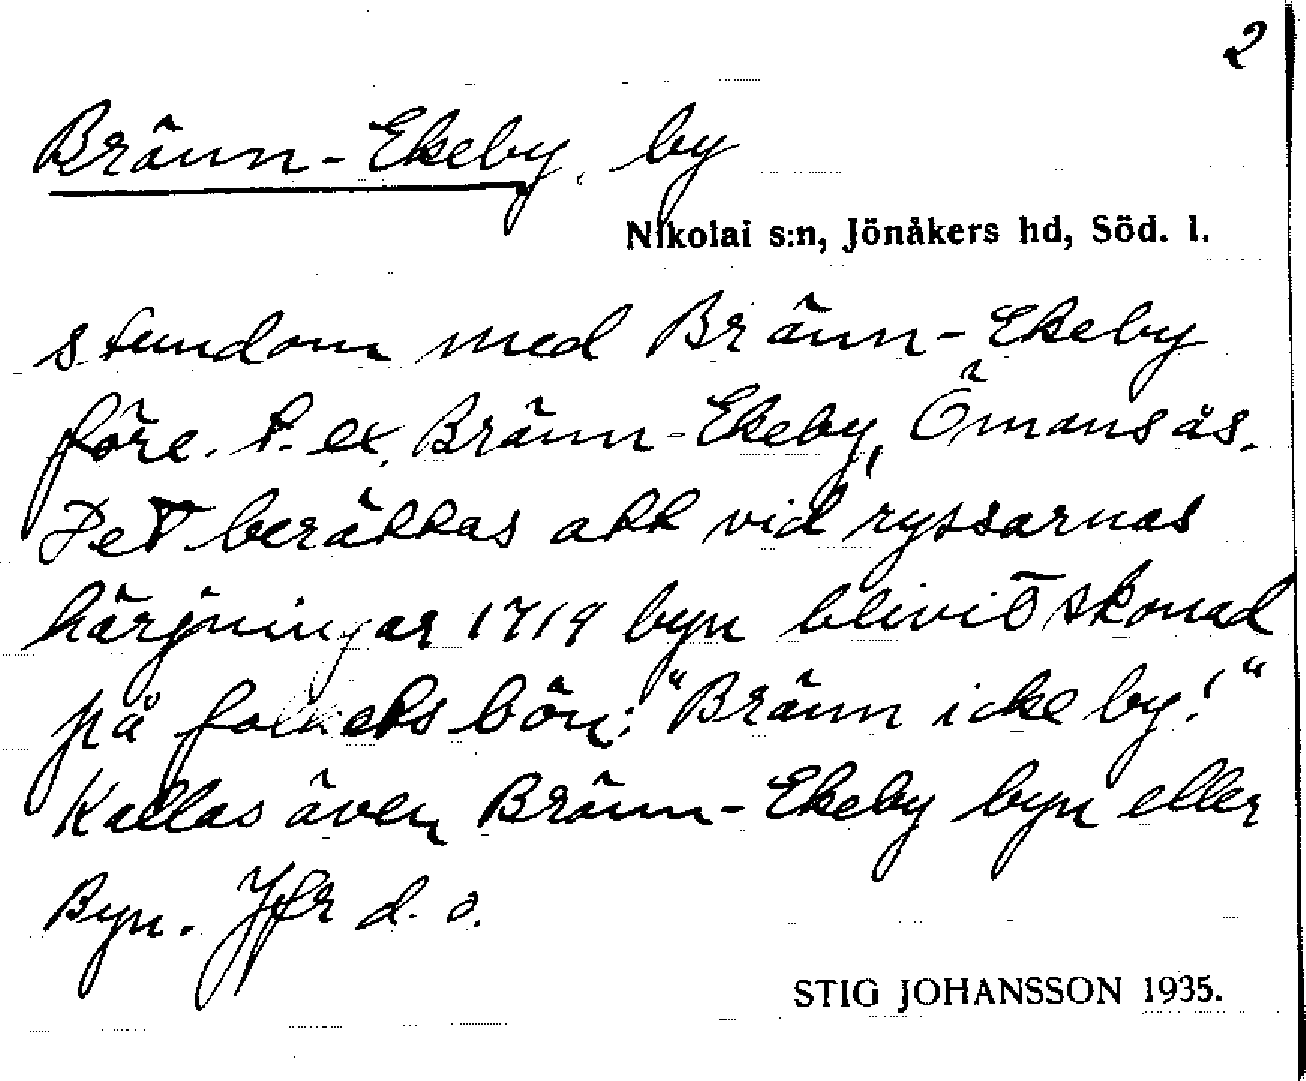 2
Bränn-Ekeby, by
Nikolai s:n, Jönåkers hd, Söd. l.
stundom med Bränn-Ekeby
före. t. ex. Bränn-Ekeby, Ömansås.
Det berättas att vid ryssarnas
härjningar 1719 byn blivit skonad
på folkets bön: "Bränn icke by!"
Kallas även Bränn-Ekeby byn eller
Byn. Jfr d. o.
STIG JOHANSSON 1935.